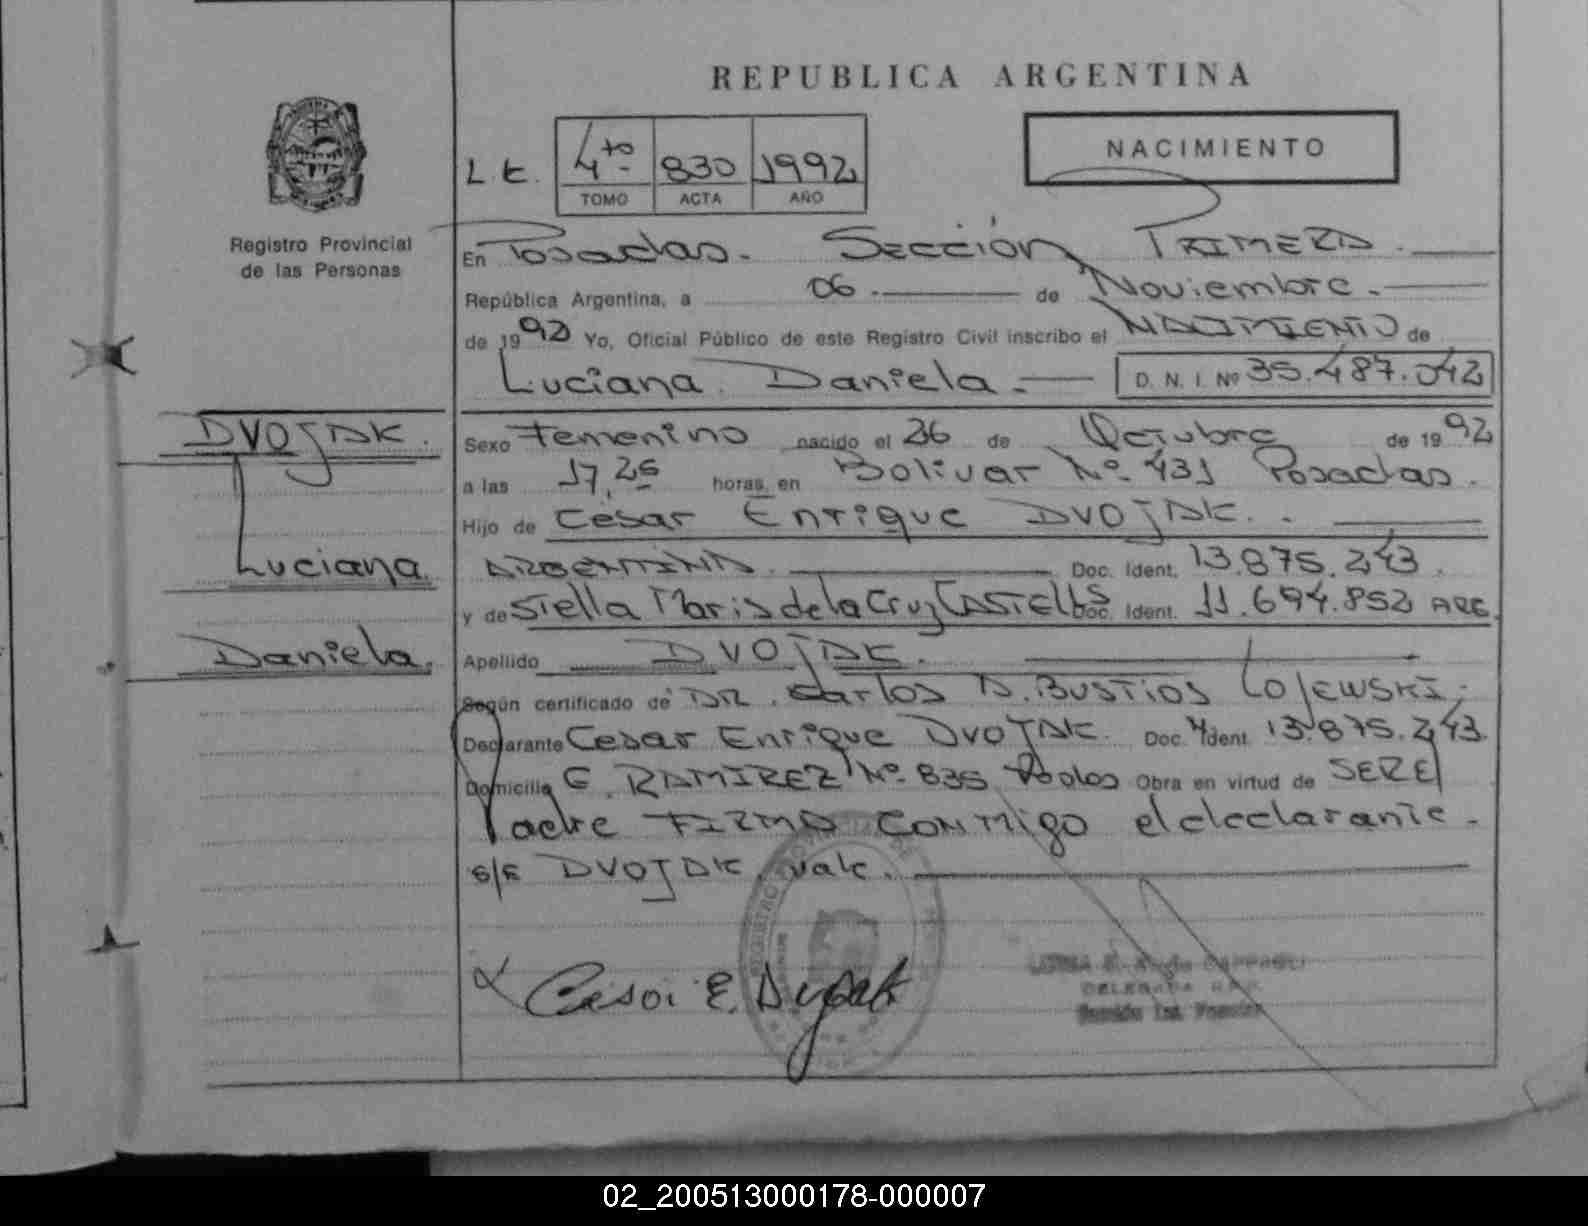 REPUBLICA ARGENTINA
NACIMIENTO
L.t. 4to 830 1992
TOMO ACTA AÑO
Registro Provincial
de las Personas
En Posadas. Sección Primera.
República Argentina, a 06 de Noviembre.
de 1992 Yo, Oficial Público de este Registro Civil inscribo el NACIMIENTO de
Luciana Daniela D. N. I. Nº 35.487.042
DVOJAK.
Luciana
Daniela.
Sexo Femenino nacido el 26 de Octubre de 1992
a las 17,25 horas, en Bolivar Nº 431 Posadas.
Hijo de Cesar Enrique DVOJAK.
ARGENTINA. Doc. Ident. 13.875.243.
y de Stella Maris de la Cruz CASTELLS Doc. Ident. 11.694.852 ARG.
Apellido DVOJAK.
Según certificado de DR. Carlos A. BUSTIOS LOJEWSKI.
Declarante Cesar Enrique DVOJAK. Doc. Ident. 13.875.243.
Domicilio G. RAMIREZ Nº 835 Obra en virtud de SER El
Padre FIRMA CONMIGO el declarante.
s/r DVOJAK. vale.
Cesar E. Dvojak
DELEGADA
02_200513000178-000007